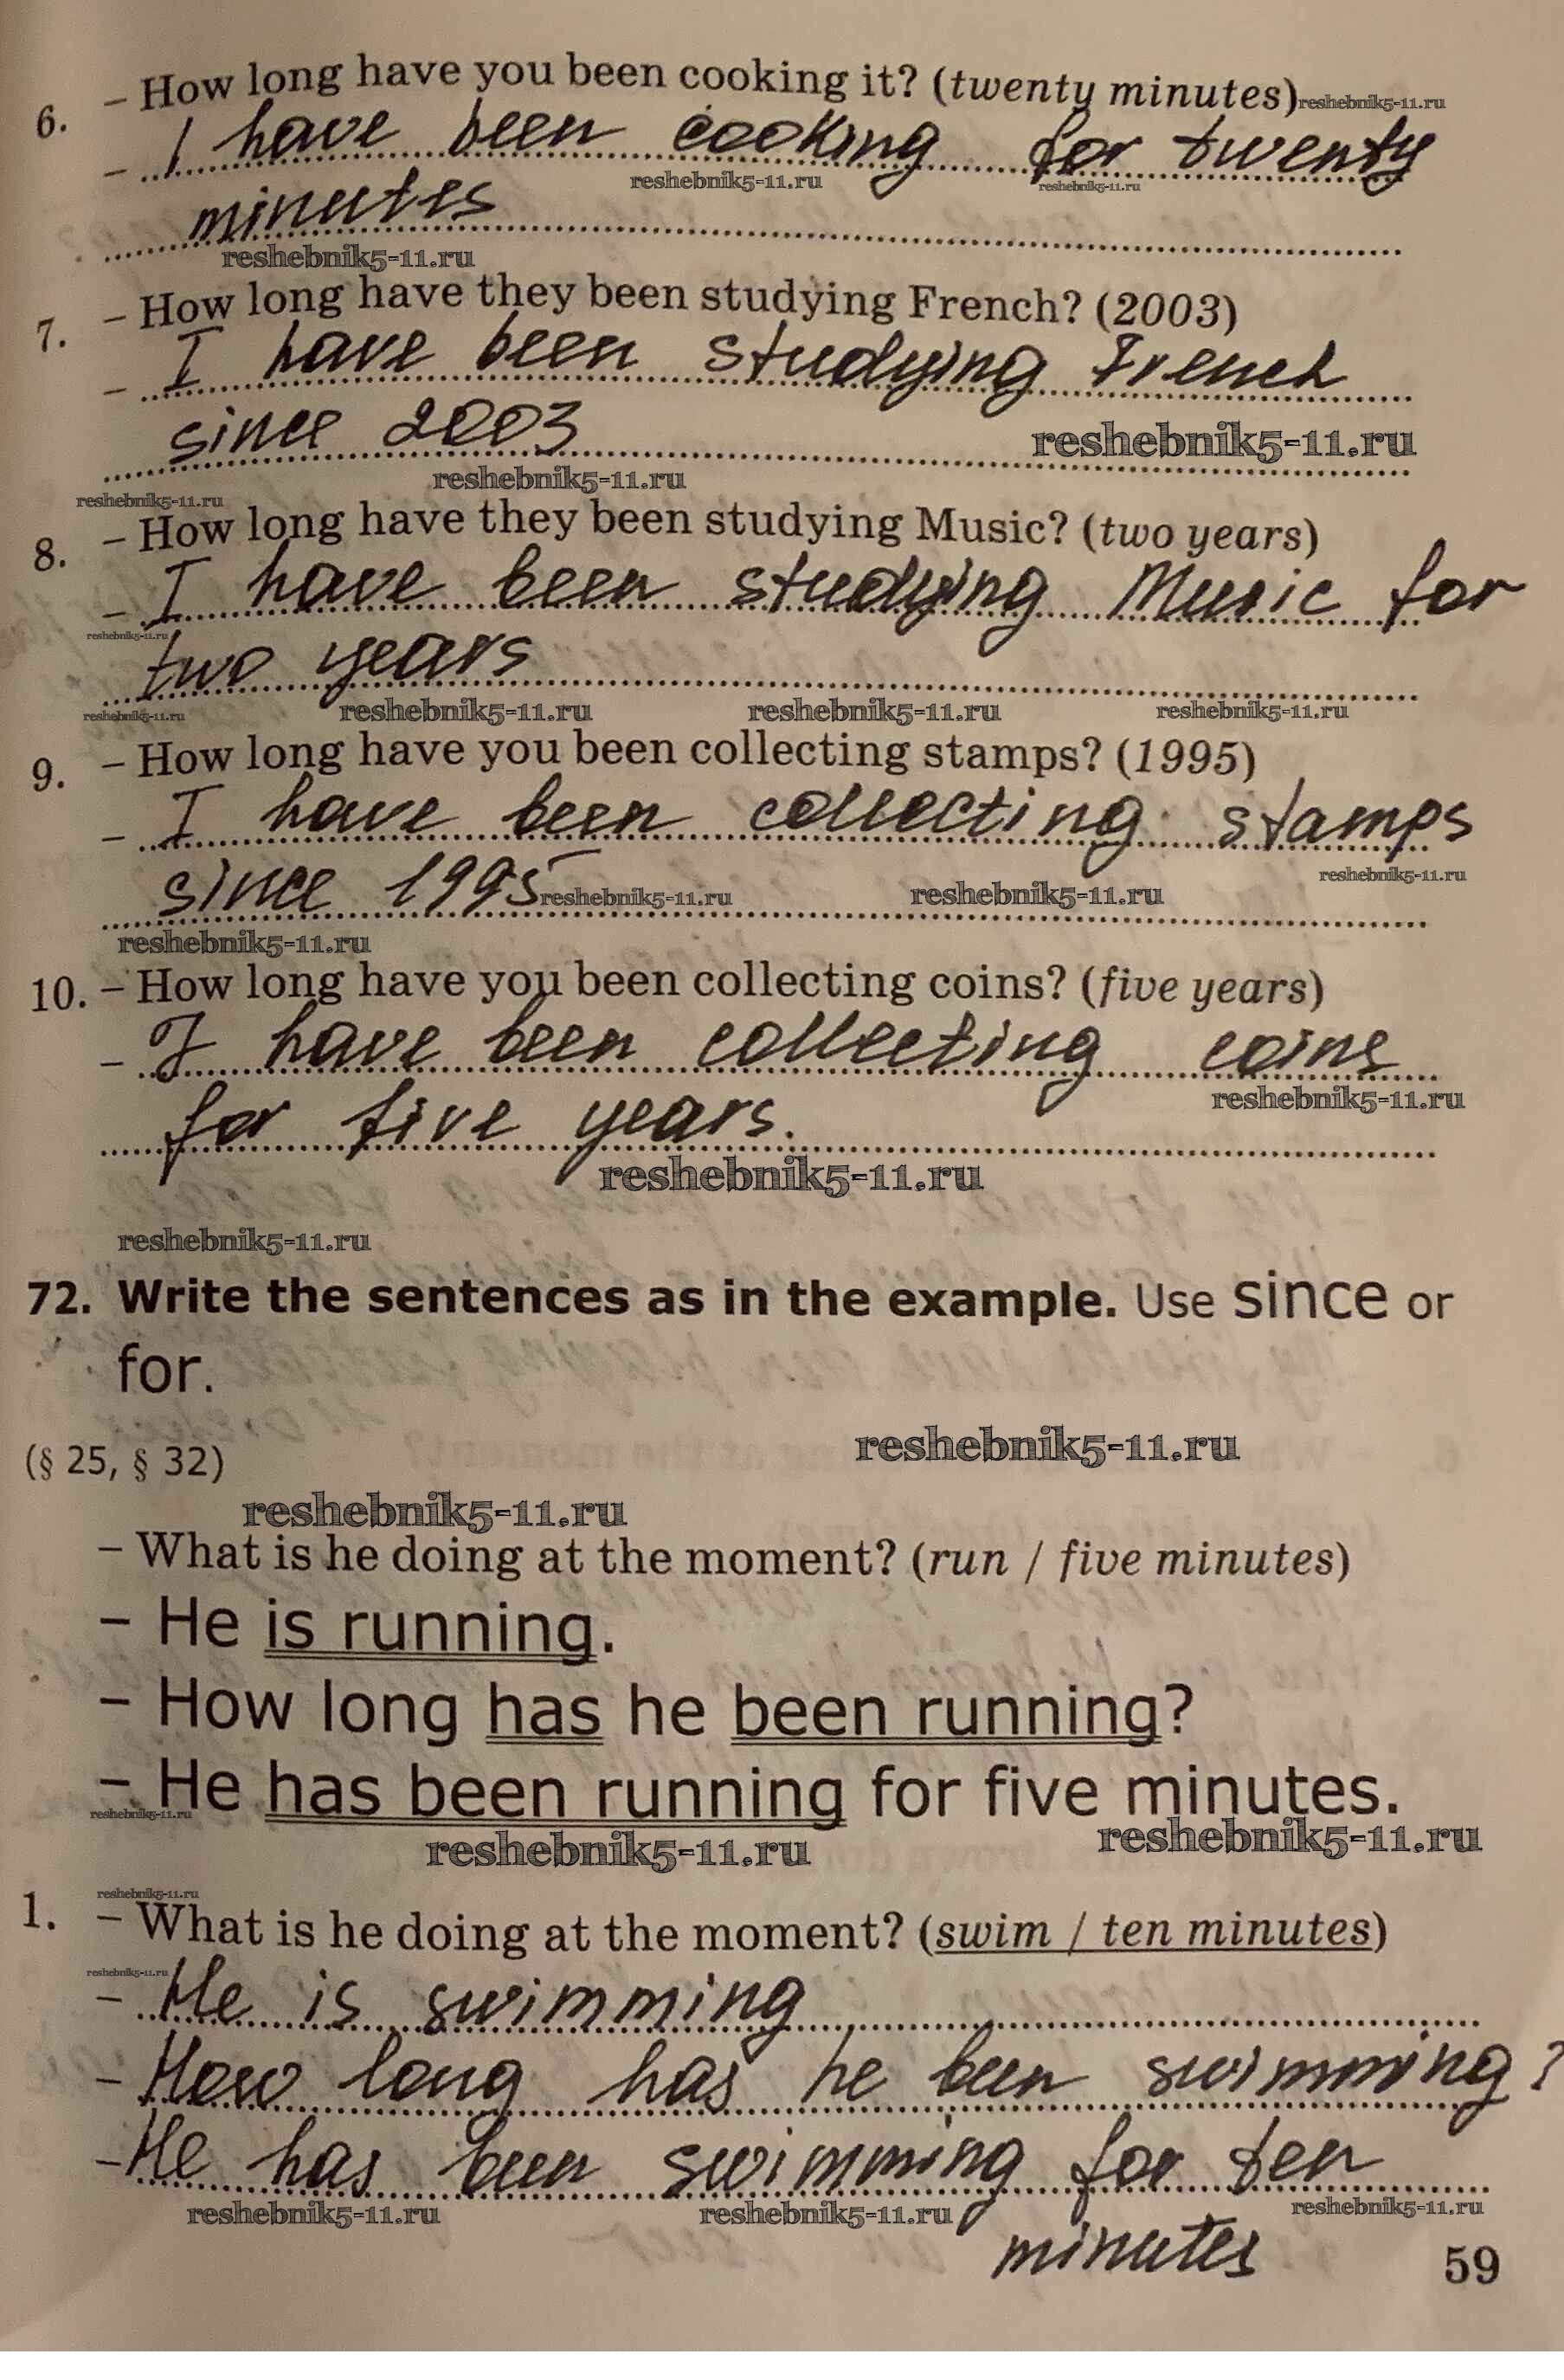 6. – How long have you been cooking it? (twenty minutes) reshebnik5-11.ru
– I have been cooking for twenty
reshebnik5-11.ru reshebnik5-11.ru
minutes
reshebnik5-11.ru
7. – How long have they been studying French? (2003)
– I have been studying French
since 2003 reshebnik5-11.ru
reshebnik5-11.ru
reshebnik5-11.ru
8. – How long have they been studying Music? (two years)
– I have been studying Music for
reshebnik5-11.ru
two years
reshebnik5-11.ru reshebnik5-11.ru reshebnik5-11.ru reshebnik5-11.ru
9. – How long have you been collecting stamps? (1995)
– I have been collecting stamps
reshebnik5-11.ru
since 1995 reshebnik5-11.ru reshebnik5-11.ru
reshebnik5-11.ru
10. – How long have you been collecting coins? (five years)
– I have been collecting coins
reshebnik5-11.ru
for five years.
reshebnik5-11.ru
reshebnik5-11.ru
72. Write the sentences as in the example. Use since or
for.
reshebnik5-11.ru
(§ 25, § 32)
reshebnik5-11.ru
– What is he doing at the moment? (run / five minutes)
– He is running.
– How long has he been running?
– He has been running for five minutes.
reshebnik5-11.ru
reshebnik5-11.ru reshebnik5-11.ru
reshebnik5-11.ru
1. – What is he doing at the moment? (swim / ten minutes)
reshebnik5-11.ru
– He is swimming
– How long has he been swimming?
– He has been swimming for ten
reshebnik5-11.ru reshebnik5-11.ru reshebnik5-11.ru
minutes
59